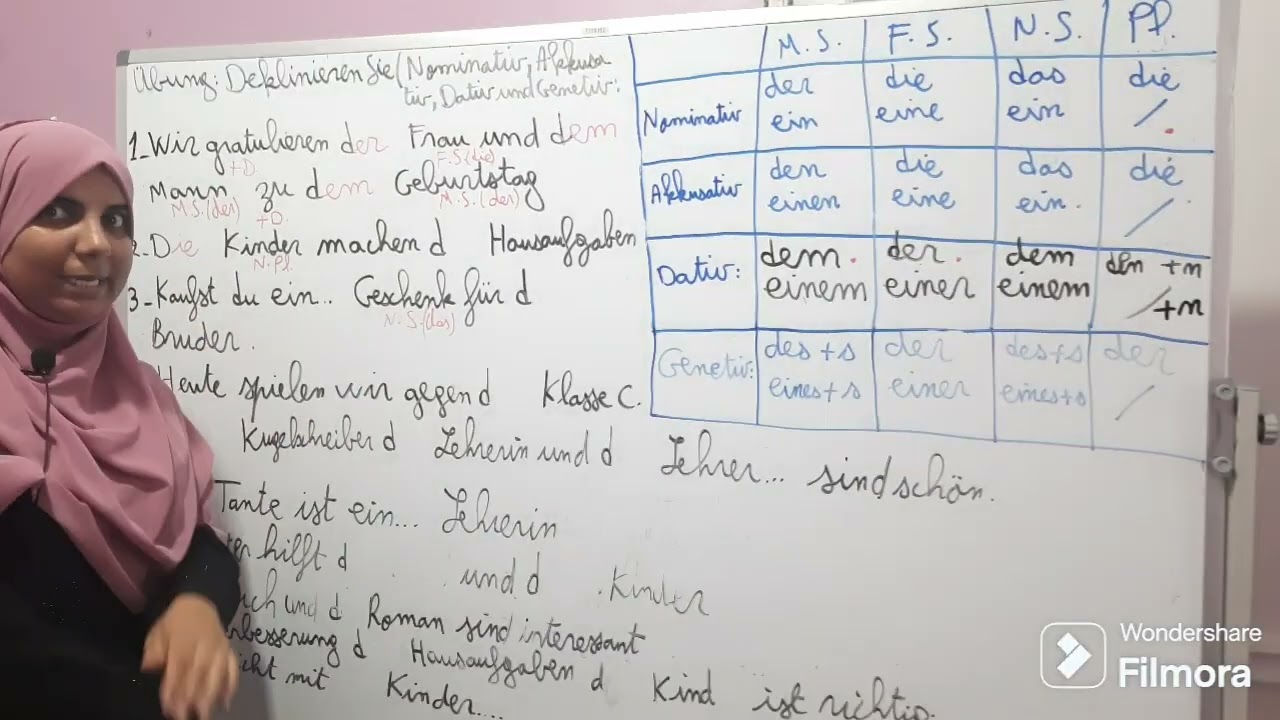 Übung: Deklinieren Sie (Nominativ, Akkusa
tiv, Dativ und Genetiv:
1_ Wir gratulieren der Frau und dem
+D F.S (die)
Mann zu dem Geburtstag
M.S. (der) +D. M.S. (der)
2. Die Kinder machen d Hausaufgaben
N. Pl.
3_ Kaufst du ein... Geschenk für d
N.S. (das)
Bruder.
Heute spielen wir gegen d Klasse C.
Kugelschreiber d Lehrerin und d Lehrer... sind schön.
Tante ist ein... Lehrerin
hilft d und d Kinder
und d Roman sind interessant
d Hausaufgaben d Kind ist richtig.
mit Kinder....
M.S. F.S. N.S. Pl.
der die das die
Nominativ ein eine ein /
den die das die
Akkusativ einen eine ein. /
Dativ: dem. der. dem den +n
einem einer einem / +n
Genetiv: des +s der des+s der
eines+s einer eines+s /
Wondershare
Filmora